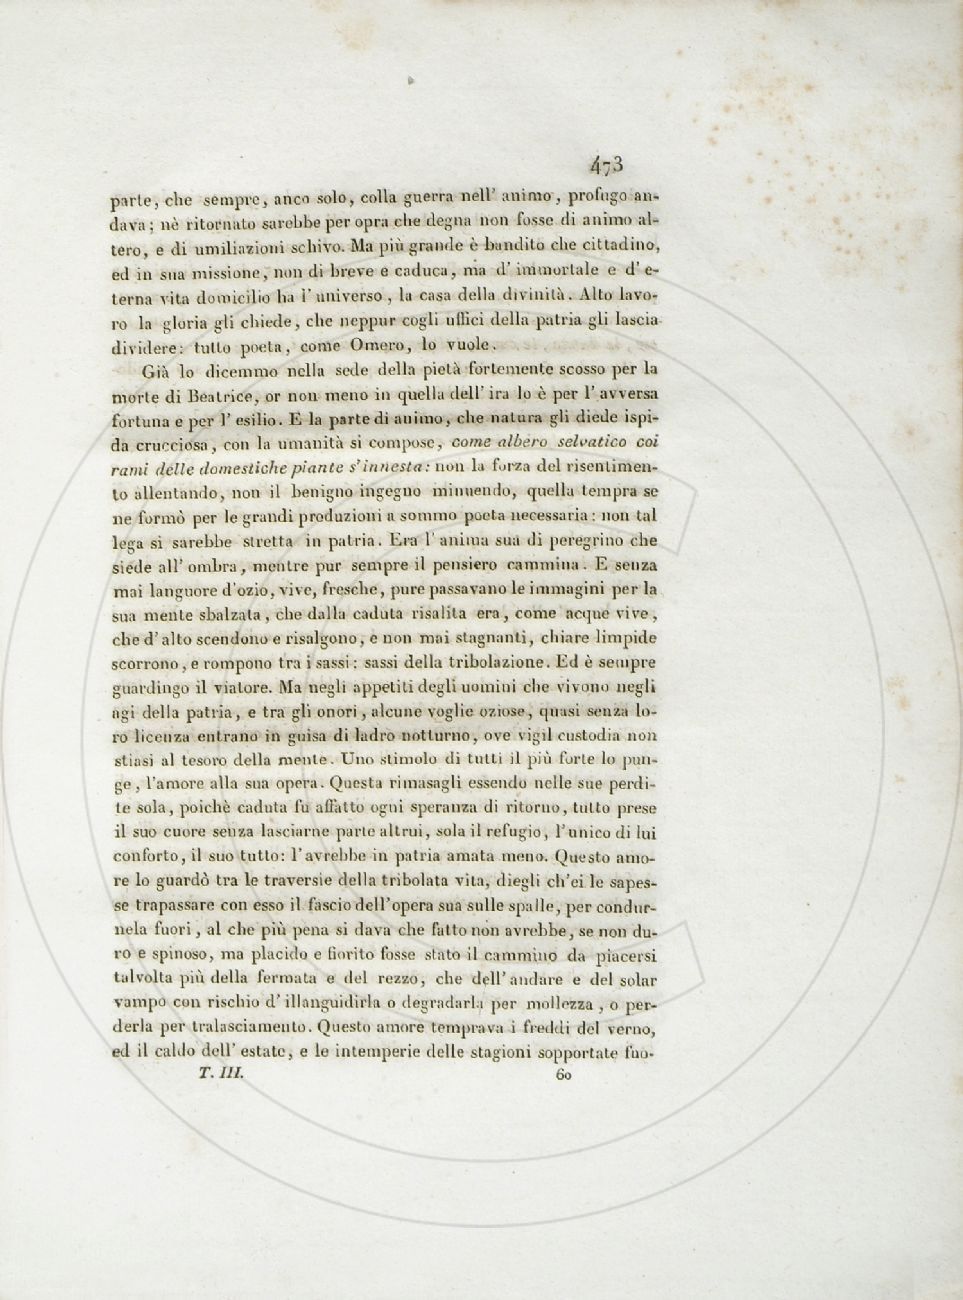 473
parte, che sempre, anco solo, colla guerra nell' animo, profugo an-
dava; nè ritornato sarebbe per opra che degna non fosse di animo al-
tero, e di umiliazioni schivo. Ma più grande è bandito che cittadino,
ed in sua missione, non di breve e caduca, ma d' immortale e d' e-
terna vita domicilio ha l' universo, la casa della divinità. Alto lavo-
ro la gloria gli chiede, che neppur cogli uffici della patria gli lascia
dividere: tutto poeta, come Omero, lo vuole.
Già lo dicemmo nella sede della pietà fortemente scosso per la
morte di Beatrice, or non meno in quella dell' ira lo è per l' avversa
fortuna e per l' esilio. E la parte di animo, che natura gli diede ispi-
da crucciosa, con la umanità si compose, come albero selvatico coi
rami delle domestiche piante s'innesta: non la forza del risentimen-
to allentando, non il benigno ingegno minuendo, quella tempra se
ne formò per le grandi produzioni a sommo poeta necessaria: non tal
lega si sarebbe stretta in patria. Era l' anima sua di peregrino che
siede all' ombra, mentre pur sempre il pensiero cammina. E senza
mai languore d'ozio, vive, fresche, pure passavano le immagini per la
sua mente sbalzata, che dalla caduta risalita era, come acque vive,
che d'alto scendono e risalgono, e non mai stagnanti, chiare limpide
scorrono, e rompono tra i sassi: sassi della tribolazione. Ed è sempre
guardingo il viatore. Ma negli appetiti degli uomini che vivono negli
agi della patria, e tra gli onori, alcune voglie oziose, quasi senza lo-
ro licenza entrano in guisa di ladro notturno, ove vigil custodia non
stiasi al tesoro della mente. Uno stimolo di tutti il più forte lo pun-
ge, l'amore alla sua opera. Questa rimasagli essendo nelle sue perdi-
te sola, poichè caduta fu affatto ogni speranza di ritorno, tutto prese
il suo cuore senza lasciarne parte altrui, sola il refugio, l'unico di lui
conforto, il suo tutto: l'avrebbe in patria amata meno. Questo amo-
re lo guardò tra le traversie della tribolata vita, diegli ch'ei le sapes-
se trapassare con esso il fascio dell'opera sua sulle spalle, per condur-
nela fuori, al che più pena si dava che fatto non avrebbe, se non du-
ro e spinoso, ma placido e fiorito fosse stato il cammino da piacersi
talvolta più della fermata e del rezzo, che dell' andare e del solar
vampo con rischio d' illanguidirla o degradarla per mollezza, o per-
derla per tralasciamento. Questo amore temprava i freddi del verno,
ed il caldo dell' estate, e le intemperie delle stagioni sopportate fuo-
T. III. 60